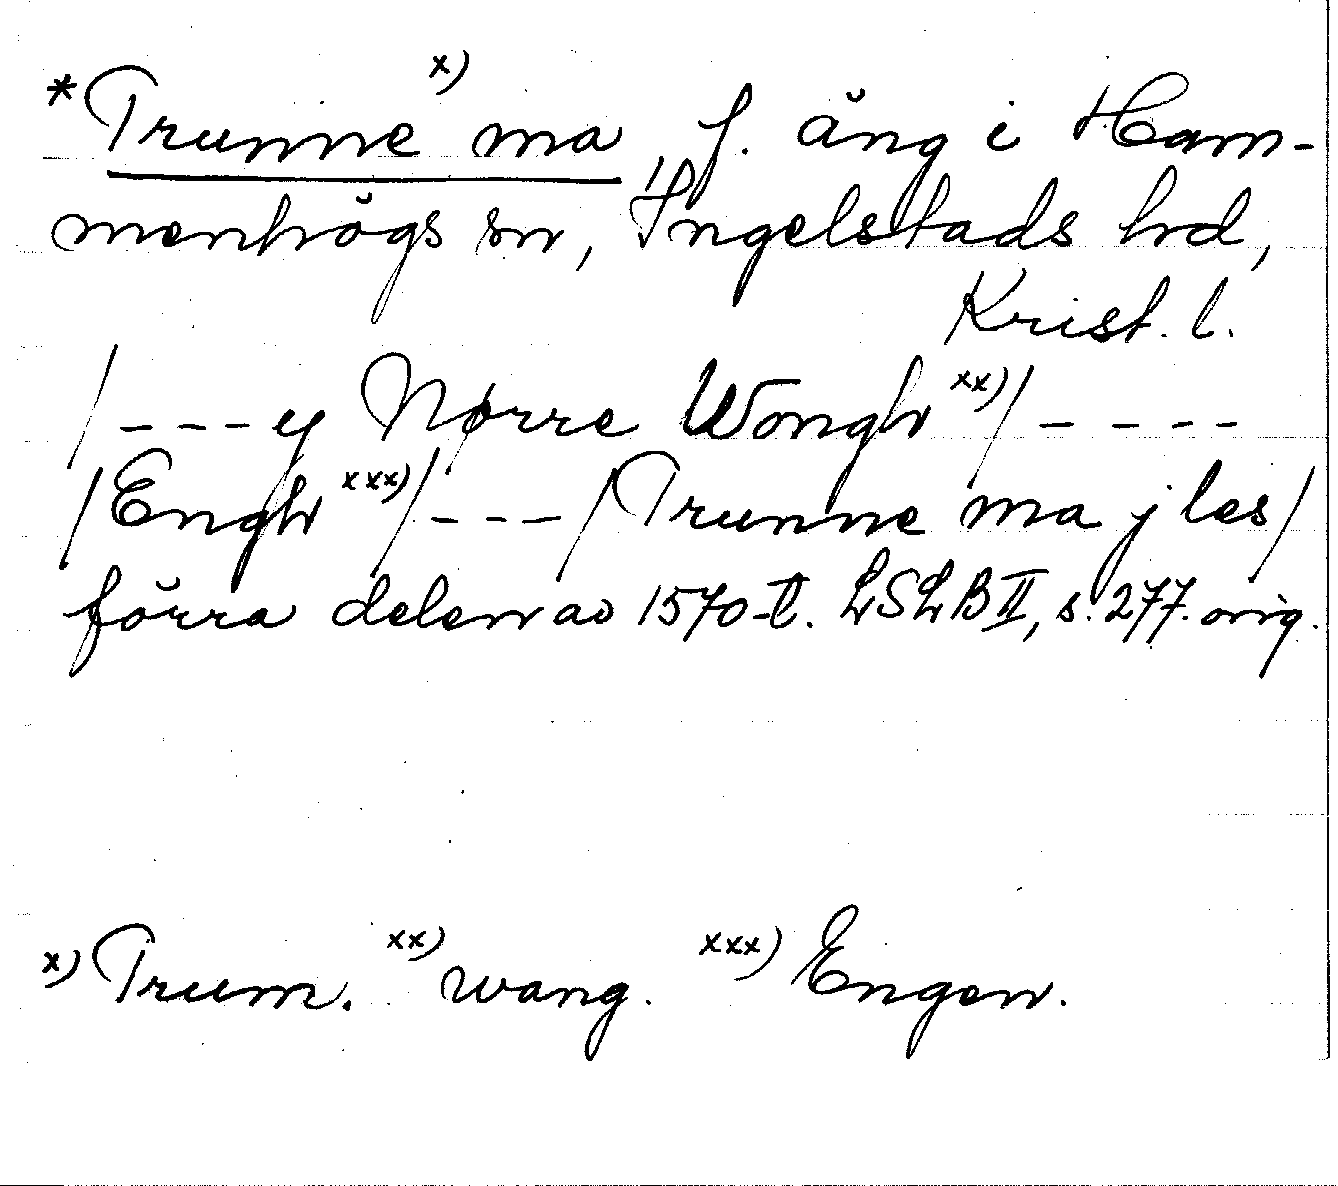 *Trunne x) ma, f. äng i Ham-
menhögs sn, Ingelstads hd,
Krist. l.
/---y Nørre Wongh xx)/----
/Engh xxx)/---/Trunne ma j les/
förra delen av 1570-t. LSLB II, s. 277. orig.
x) Trum. xx) wang. xxx) Engen.